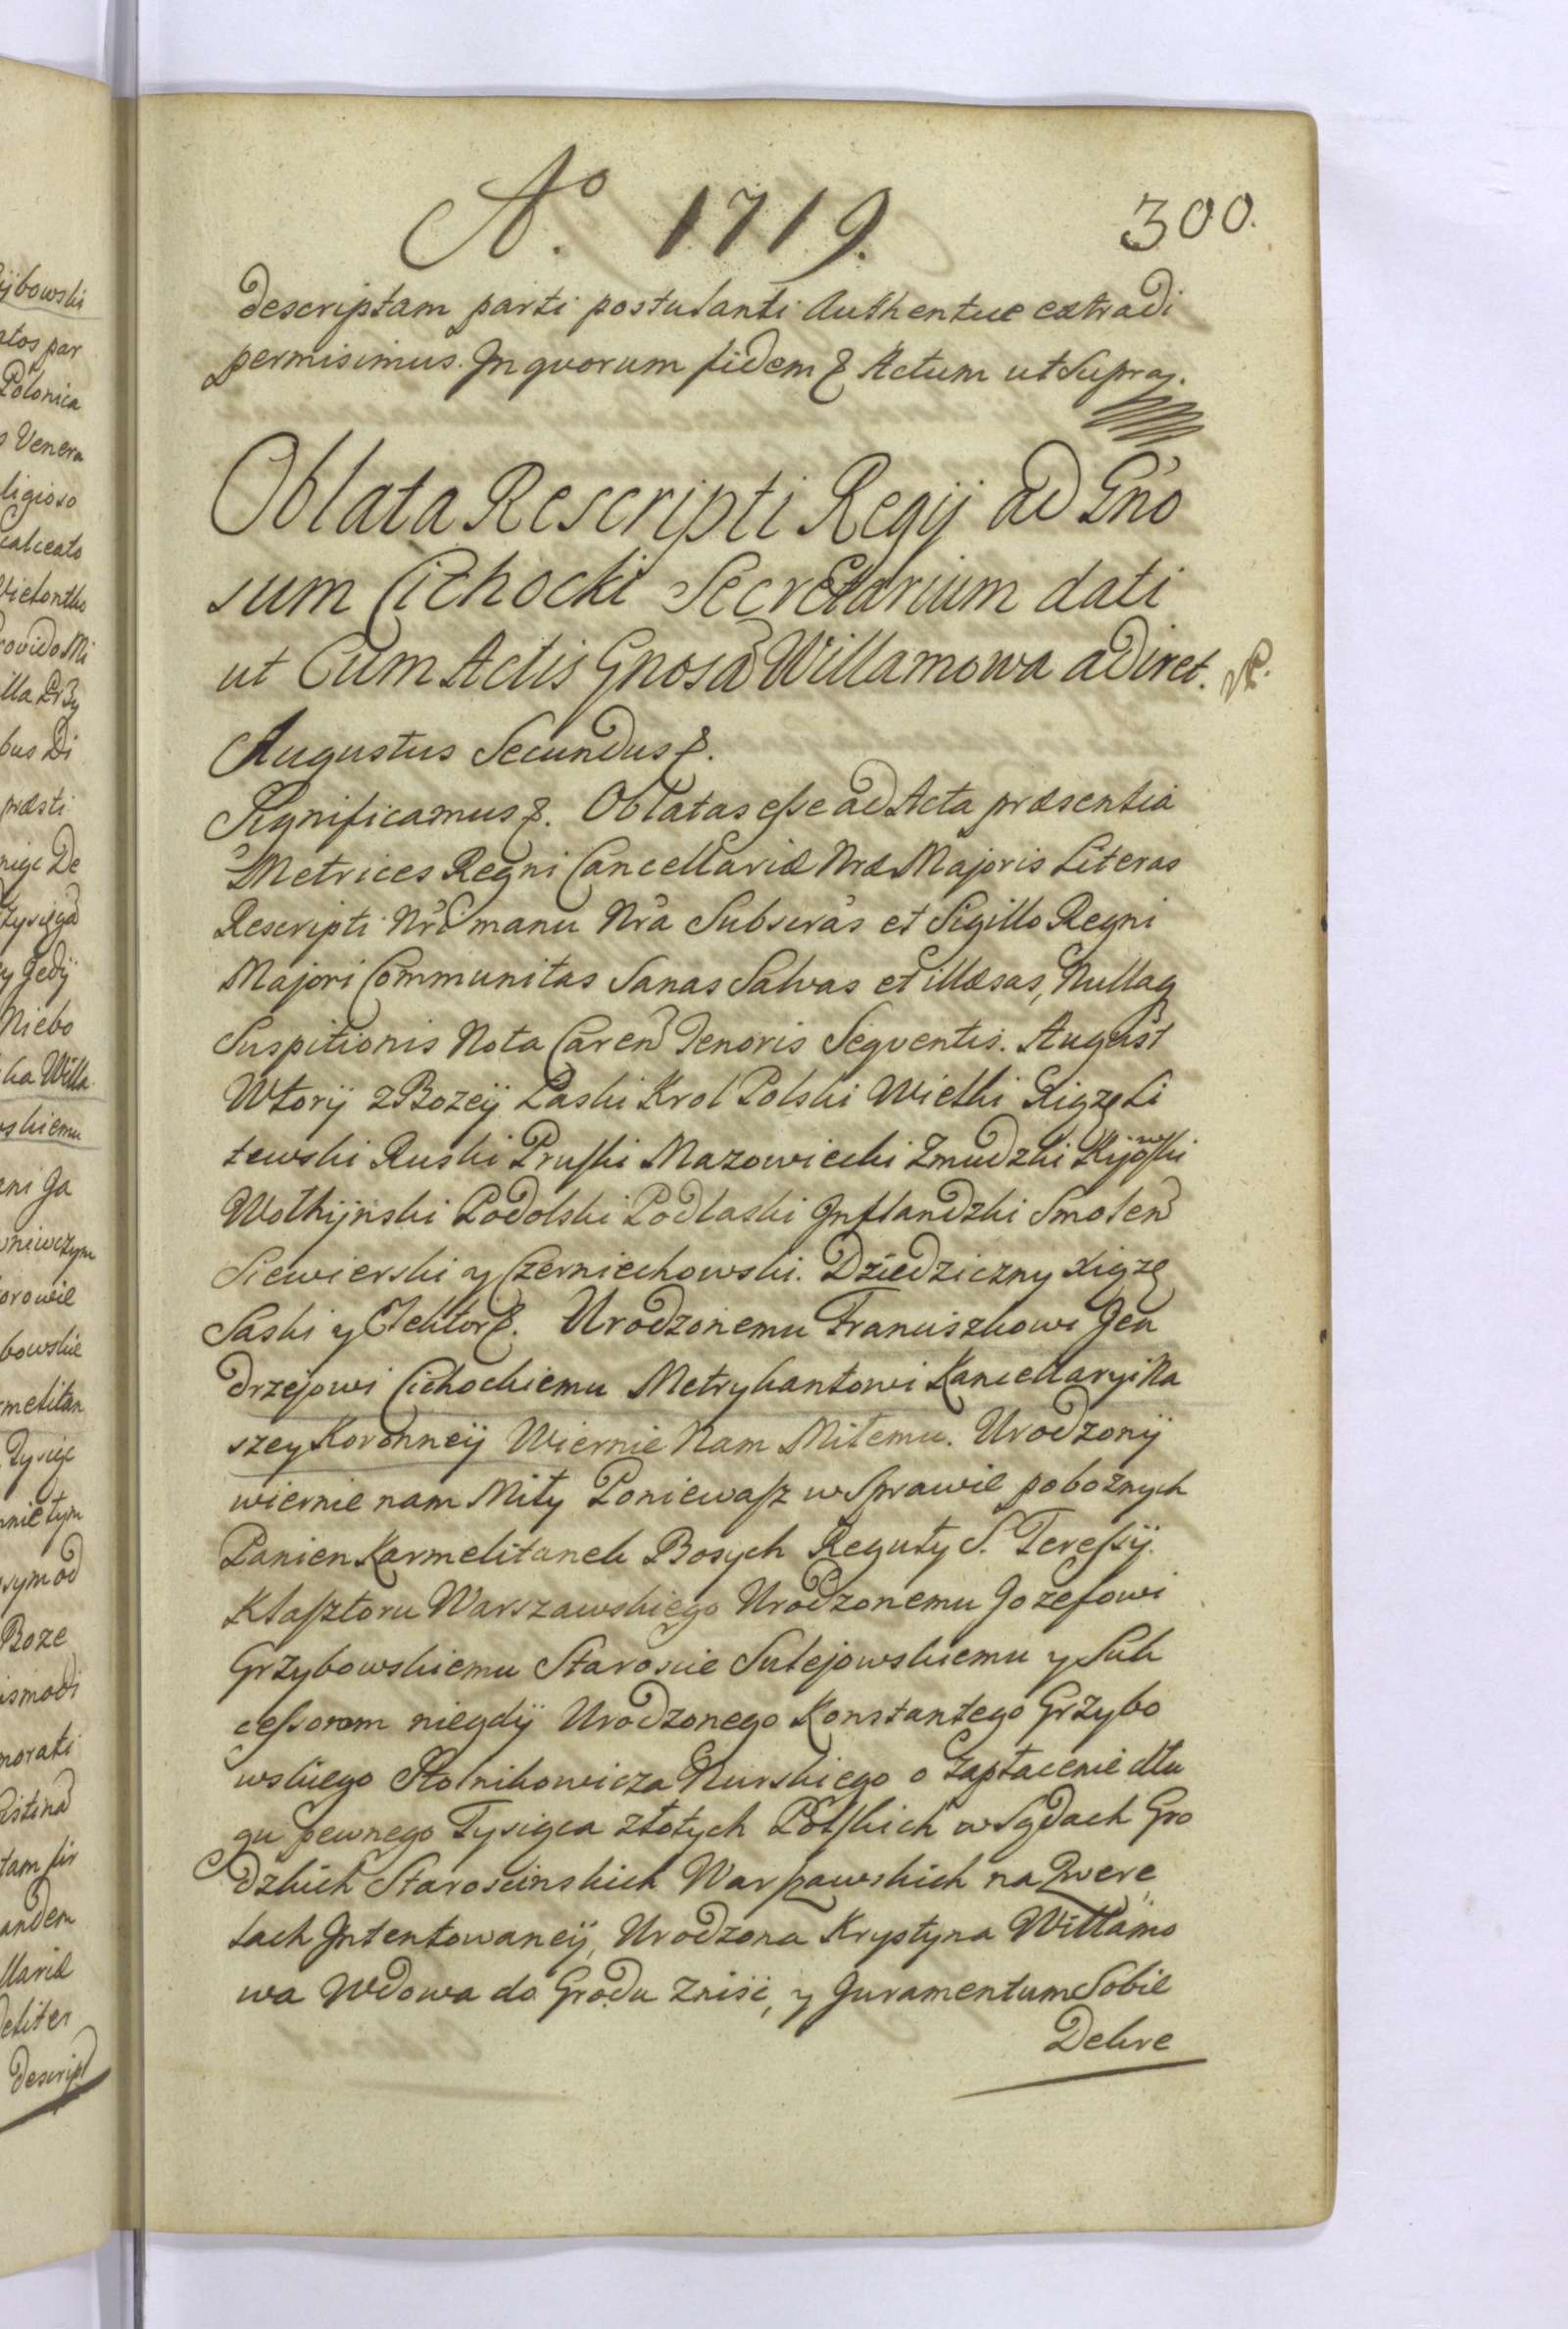 Aº. 1719.
300.
descriptam parti postulanti Authentice extradi
permisimus. In quorum fidem & Actum ut Supra.
Oblata Rescripti Regij ad Gno
sum Cichocki Secretarium dati
ut Cum Actis Gnosa Willamowa adiret.
Augustus Secundus &.
Significamus &. Oblatas eſse ad Acta præsentia
Metrices Regni Cancellariæ Nræ Majoris Literas
Rescripti Nrĩ manu Nra Subscras et Sigillo Regni
Majori Communitas Sanas Salvas et illæsas, Nullaq
Suspitionis Nota Caren Tenoris Seqventis. August
Wtory z Bozey Łaski Krol Polski Wielki Xiąze Li
tewski Ruski Pruſki Mazowiecki Zmudzki Kijowſki
Wołhÿnski Podolski Podlaski Inflandzki Smolen
Siewierski y Czerniechowski. Dziedziczny xiąze
Saski y Elektor &. Urodzonemu Franciszkowi Jen
drzejowi Cichockiemu Metrykantowi Kancellaryi Na
szey Koronneÿ Wiernie Nam Miłemu. Urodzonÿ
wiernie nam Miły Poniewaſz w Sprawie poboznych
Panien Karmelitanek Bosych Reguły S. Tereſsÿ
Klaſztoru Warszawskiego Urodzonemu Jozefowi
Grzybowskiemu Staroscie Sulejowskiemu y Suk
ceſsorom niegdÿ Urodzonego Konstantego Grzybo
wskiego Stolnikowicza Nurskiego o Zapłacenie dłu
gu pewnego Tysiąca złotych Polſkich w Sądach Gro
dzkich Staroscinskich Warſzawskich na Qvere
lach Intentowaneÿ, Urodzona Krystyna Willamo
wa Wdowa do Grodu Zniść, y Juramentum Sobie
Dekre